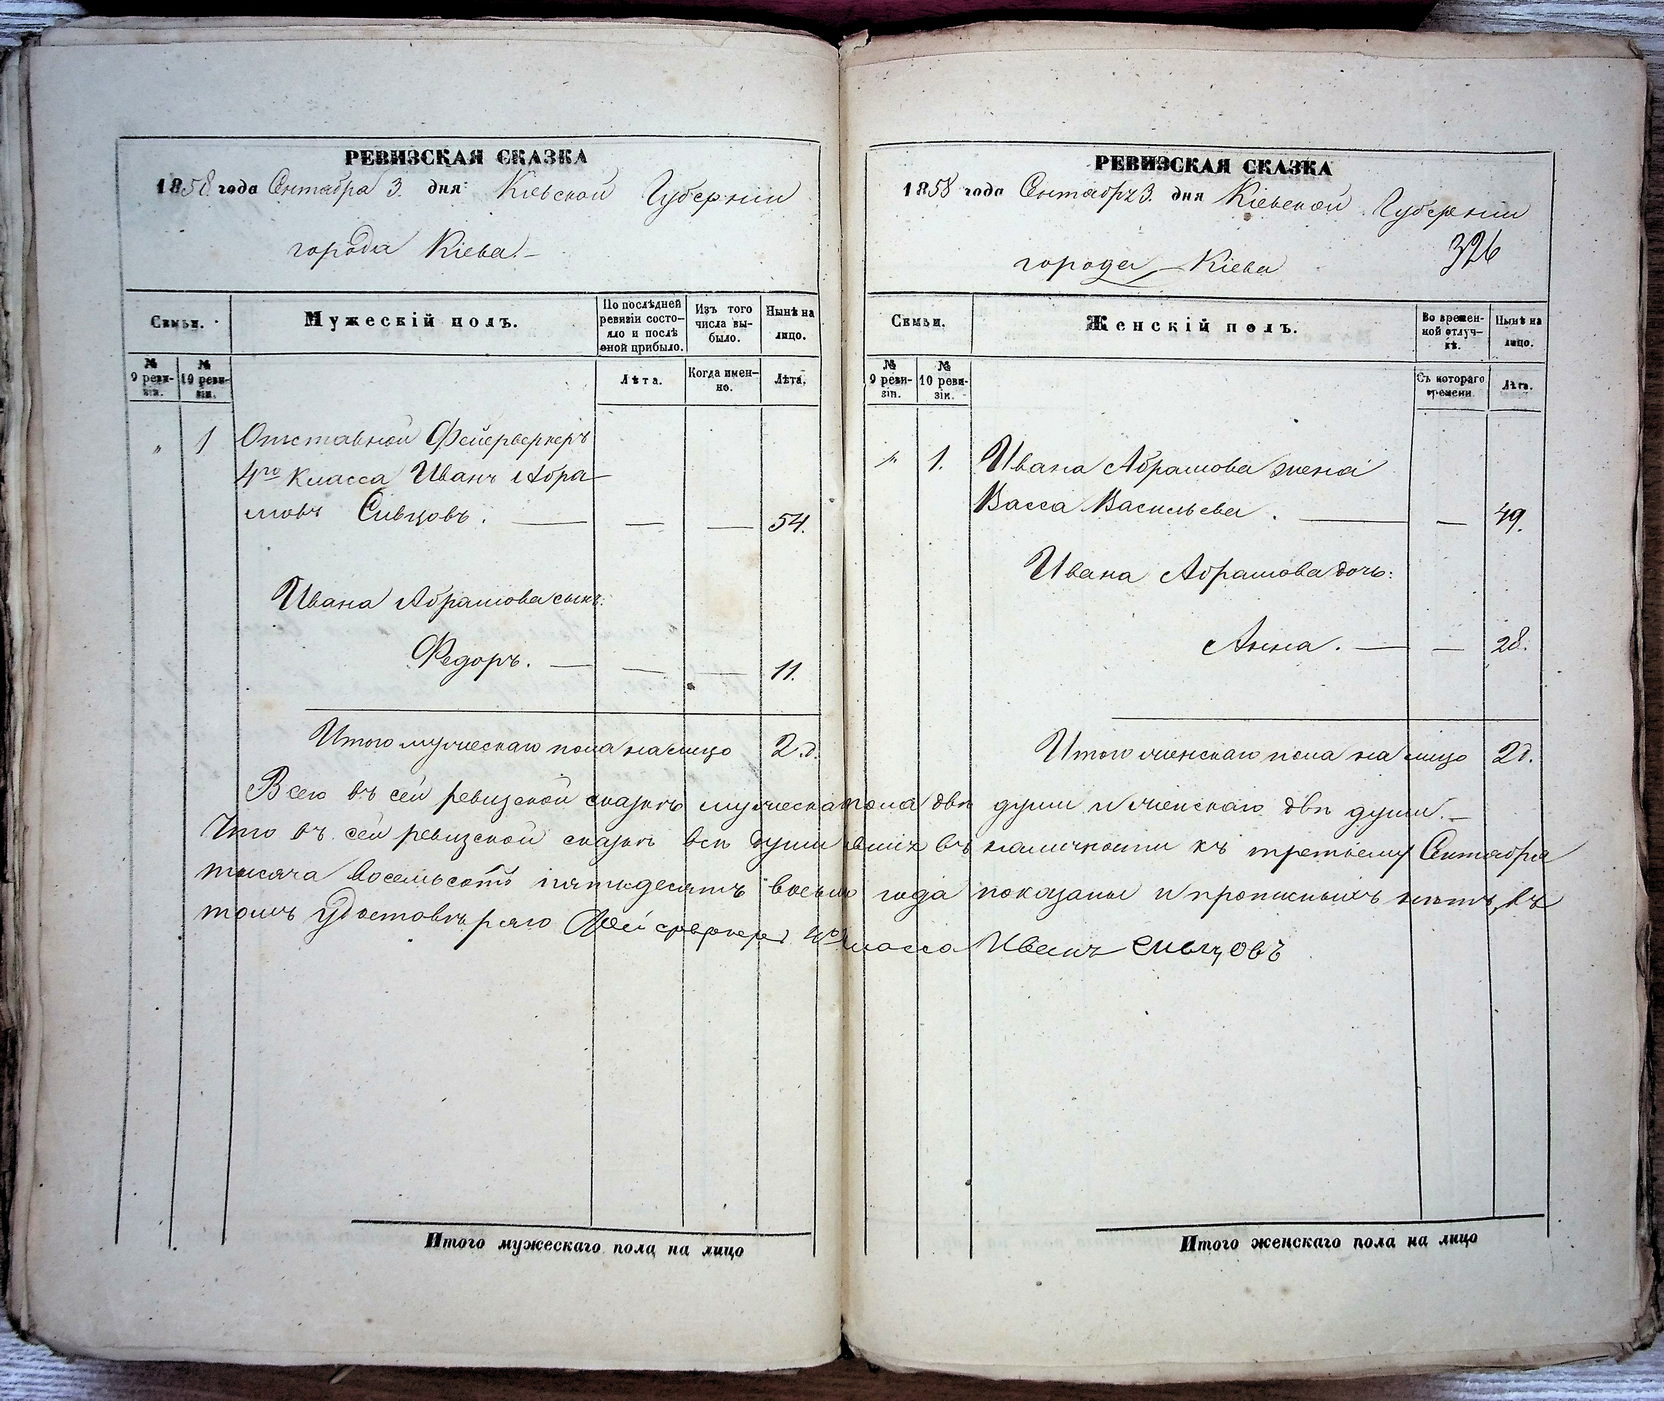 РЕВИЗСКАЯ СКАЗКА
1858 года Сентября 3. дня Кіевской Губерніи
города Кіева.
Семьи.
Мужескій полъ.
По послѣдней ревизіи состояло и послѣ оной прибыло.
Изъ того числа выбыло.
Нынѣ на лицо.
№ 9 ревизіи.
№ 10 ревизіи.
Лѣта.
Когда именно.
Лѣта.
„ 1 Отставной Фейерверкеръ
4го класса Иванъ Абра-
мовъ Сивцовъ. — — — 54.
Ивана Абрамова сынъ:
Федоръ. — — — 11.
Итого мужескаго пола на лицо 2.д.
РЕВИЗСКАЯ СКАЗКА
1858 года Сентября 3. дня Кіевской Губерніи
города Кіева
326
Семьи.
Женскій полъ.
Во временной отлучкѣ.
Нынѣ на лицо.
№ 9 ревизіи.
№ 10 ревизіи.
Съ котораго времени
Лѣта.
„ 1. Ивана Абрамова жена
Васса Васильева. — — 49.
Ивана Абрамова дочь:
Анна. — — 28.
Итого женскаго пола на лицо 2д.
Всего въ сей ревизской сказкѣ мужеска пола двѣ души и женскаго двѣ души.—
Что въ сей ревизской сказкѣ всѣ души въ наличности къ третьему Сентября
тысяча восемьсотъ пятьдесятъ восьмо года показаны и прописныхъ нѣтъ, въ
томъ удостовѣряю Фейерверкеръ 4го класса Иванъ Сивцовъ
Итого мужескаго пола на лицо
Итого женскаго пола на лицо